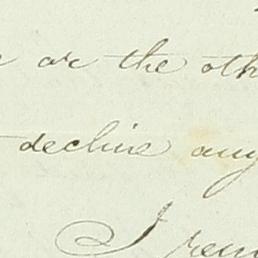 or the oth
decline any
I rem